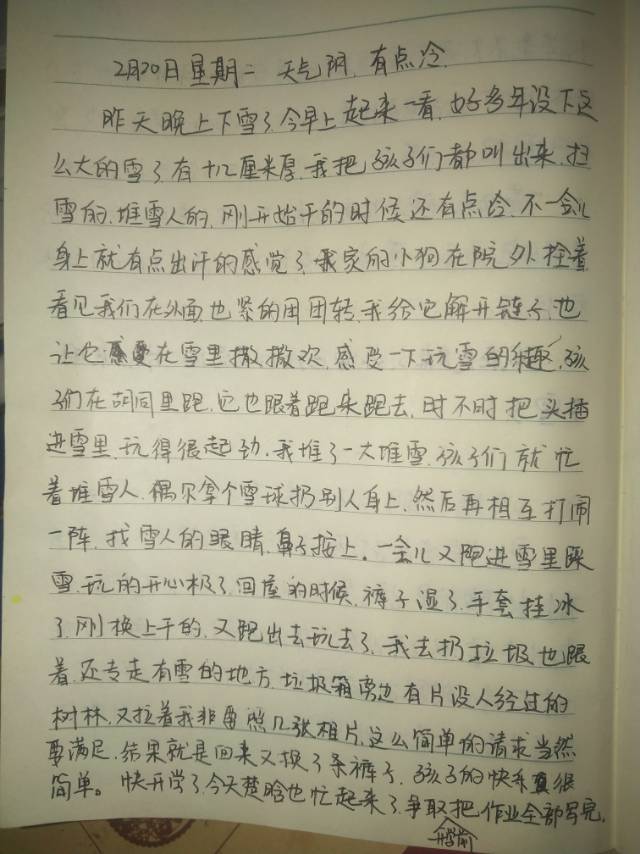 2月20日星期二 天气阴,有点冷.
昨天晚上下雪了,今早上起来一看,好多年没下这
么大的雪了,有十几厘米厚,我把孩子们都叫出来,扫
雪的,堆雪人的,刚开始干的时候还有点冷,不一会儿
身上就有点出汗的感觉了,我家的小狗在院外拴着
看见我们在外面也紧的团团转,我给它解开链子,也
让它在雪里撒撒欢,感受一下玩雪的乐趣,孩
子们在胡同里跑,它也跟着跑来跑去,时不时把头插
进雪里,玩得很起劲.我堆了一大堆雪,孩子们就忙
着堆雪人,偶尔拿个雪球扔别人身上,然后再相互打闹
一阵,找雪人的眼睛,鼻子按上。一会儿又跑进雪里踩
雪,玩的开心极了,回屋的时候,裤子湿了,手套挂冰
了,刚换上干的,又跑出去玩去了,我去扔垃圾也跟
着,还专走有雪的地方,垃圾箱旁边有片没人经过的
树林,又拉着我非要照几张相片,这么简单的请求当然
要满足,结果就是回来又换了条裤子,孩子的快乐真很
简单。快开学了,今天楚晗也忙起来了,争取把作业全部写完,
开学前